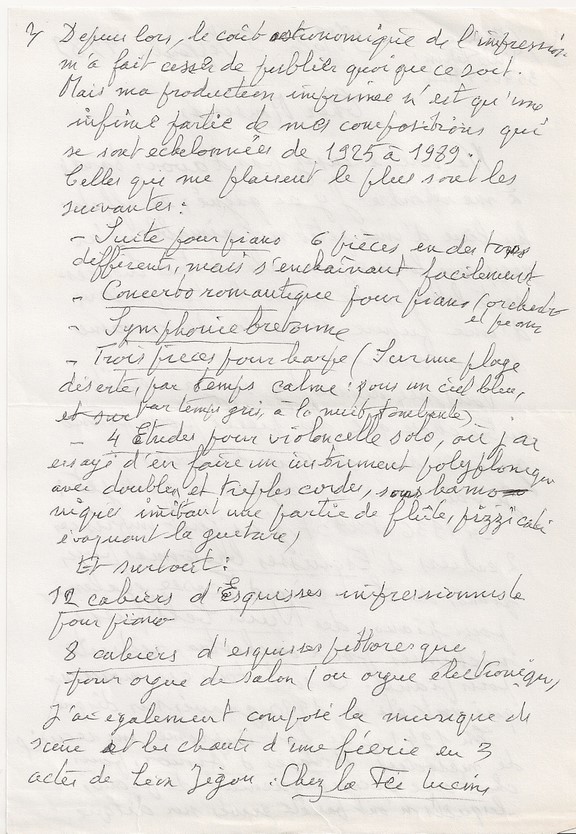 3/ Depuis lors, le coût astronomique de l'impression
m'a fait cesser de publier quoi que ce soit.
Mais ma production imprimée n'est qu'une
infime partie de mes compositions qui
se sont echelonnées de 1925 à 1989.
Celles qui me plaisent le plus sont les
suivantes :
- Suite pour piano 6 pièces en des tons
différents, mais s'enchaînant facilement
- Concerto romantique pour piano (orchestre
et piano
- Symphonie bretonne
- Trois pièces pour harpe (Sur une plage
déserte, par temps calme : sous un ciel bleu,
et sur par temps gris, à la nuit tombante)
- 4 Etudes pour violoncelle solo, où j'ai
essayé d'en faire un instrument polyphonique
avec doubles et triples cordes, sons harmo
niques imitant une partie de flûte, pizzicati
évoquant la guitare,
Et surtout :
12 cahiers d'Esquisses impressionniste
pour piano
8 cahiers d'esquisses pittoresque
pour orgue de salon (ou orgue électronique)
J'ai également composé la musique de
scène et les chants d'une féerie en 3
actes de Léon Jégou : Chez la Fée